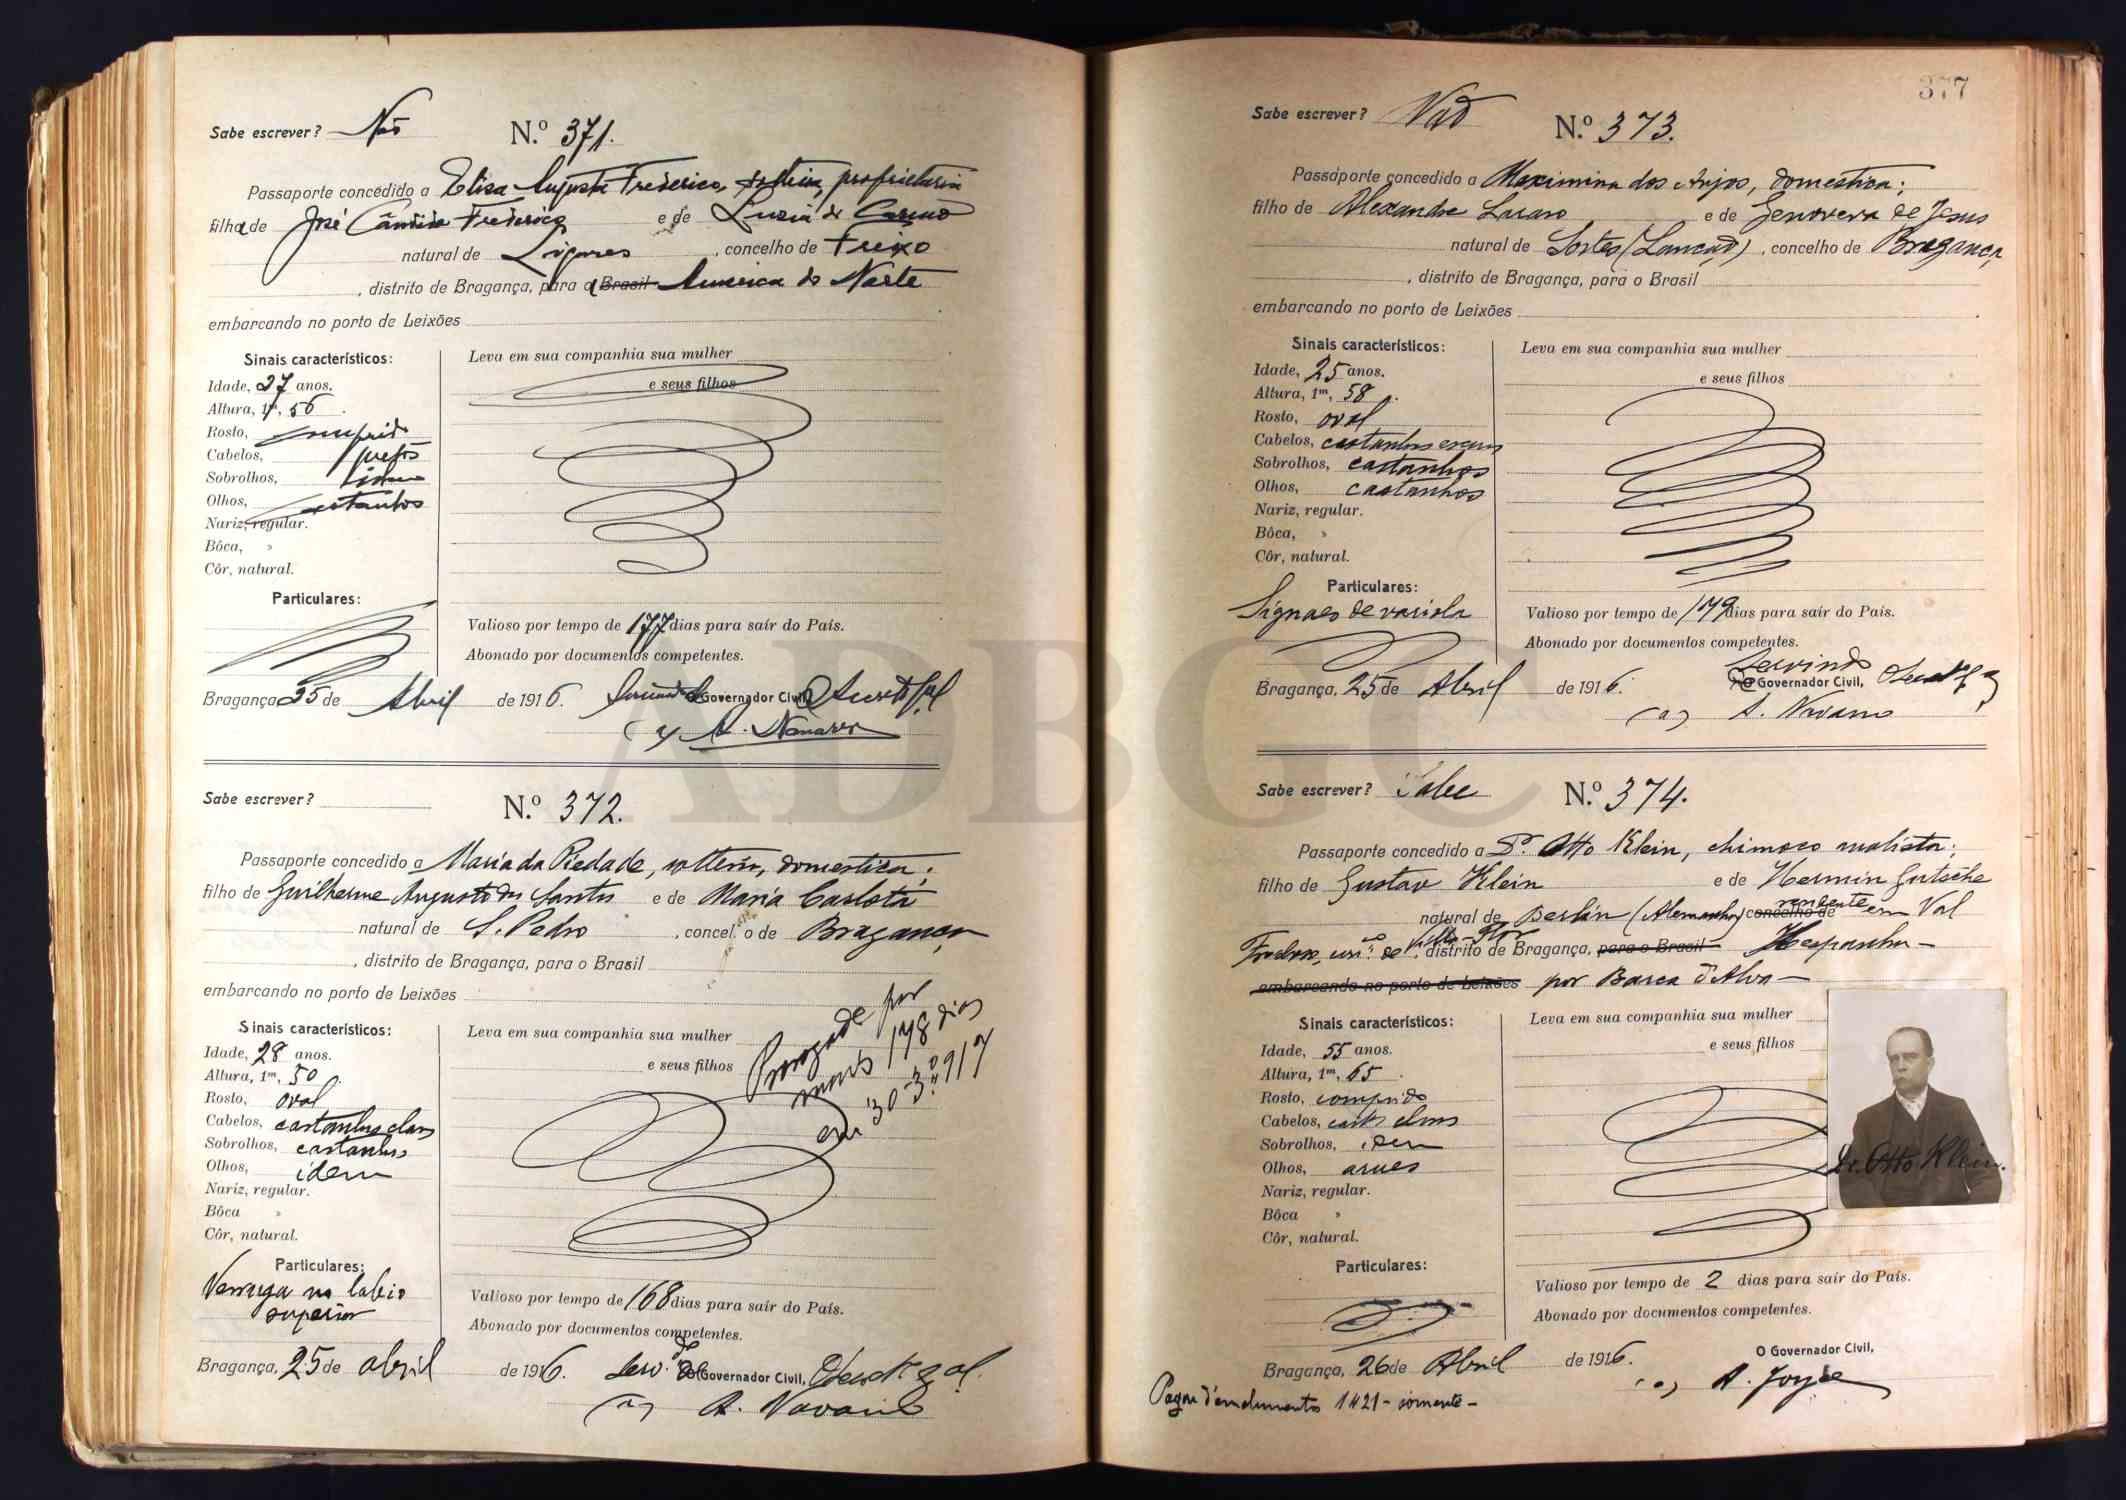 Sabe escrever? Não
N.º 371.
Passaporte concedido a Elisa Augusta Frederico, solteira, proprietaria
filha de José Cândido Frederico e de Luzia do Carmo
natural de Ligares, concelho de Freixo
, distrito de Bragança, para a Brasil America do Norte
embarcando no porto de Leixões
Sinais característicos:
Idade, 27 anos.
Altura, 1m, 56.
Rosto, comprido
Cabelos, pretos
Sobrolhos, idem
Olhos, castanhos
Nariz, regular.
Bôca, »
Côr, natural.
Particulares:
Leva em sua companhia sua mulher
e seus filhos
Valioso por tempo de 177 dias para saír do País.
Abonado por documentos competentes.
Bragança 25 de Abril de 1916. Servindo O Governador Civil, O Secret. Gal
(a) A. Navarro
Sabe escrever?
N.º 372.
Passaporte concedido a Maria da Piedade, solteira, domestica;
filho de Guilherme Augusto dos Santos e de Maria Carlota
natural de S. Pedro, concelho de Bragança
, distrito de Bragança, para o Brasil
embarcando no porto de Leixões
Sinais característicos:
Idade, 28 anos.
Altura, 1m, 50.
Rosto, oval
Cabelos, castanhos claros
Sobrolhos, castanhos
Olhos, idem
Nariz, regular.
Bôca »
Côr, natural.
Particulares:
Verruga no labio
superior
Leva em sua companhia sua mulher
e seus filhos
Prorogado por
mais 178 dias
em 30-3.º-917
Valioso por tempo de 168 dias para saír do País.
Abonado por documentos competentes.
Bragança, 25 de abril de 1916. Serv. de O Governador Civil, O Secret. Gal.
(a) A. Navarro
377
Sabe escrever? Não
N.º 373.
Passaporte concedido a Maximina dos Anjos, domestica;
filho de Alexandre Lazaro e de Genoveva de Jesus
natural de Sortes (Lanção), concelho de Bragança,
, distrito de Bragança, para o Brasil
embarcando no porto de Leixões
Sinais característicos:
Idade, 25 anos.
Altura, 1m, 58.
Rosto, oval
Cabelos, castanhos escuros
Sobrolhos, castanhos
Olhos, castanhos
Nariz, regular.
Bôca, »
Côr, natural.
Particulares:
Signaes de variola
Leva em sua companhia sua mulher
e seus filhos
Valioso por tempo de 179 dias para saír do País.
Abonado por documentos competentes.
Bragança, 25 de Abril de 1916. Servindo de O Governador Civil, O Secret. Gal
(a) A. Navarro
Sabe escrever? Sabe
N.º 374.
Passaporte concedido a Dr. Otto Klein, chimico analista;
filho de Gustav Klein e de Hermin Gutsche
natural de Berlin (Alemanha) concelho de residente em Val
Frechoso, con.º de Villa-Flor distrito de Bragança, para o Brasil Hespanha-
embarcando no porto de Leixões por Barca d'Alva-
Sinais característicos:
Idade, 55 anos.
Altura, 1m, 65.
Rosto, comprido
Cabelos, cast. claros
Sobrolhos, idem
Olhos, azues
Nariz, regular.
Bôca »
Côr, natural.
Particulares:
Leva em sua companhia sua mulher
e seus filhos
Dr. Otto Klein.
Valioso por tempo de 2 dias para saír do País.
Abonado por documentos competentes.
Bragança, 26 de Abril de 1916. O Governador Civil,
(a) A. Joyce
Pagou d'emolumentos 1$21- sómente-
ADBGC